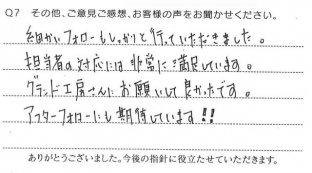 Q7 その他、ご意見ご感想、お客様の声をお聞かせください。
細かいフォローもしっかりと行っていただきました。
担当者の対応には非常に満足しています。
グランド工房さんにお願いして良かったです。
アフターフォローにも期待しています!!
ありがとうございました。今後の指針に役立たせていただきます。